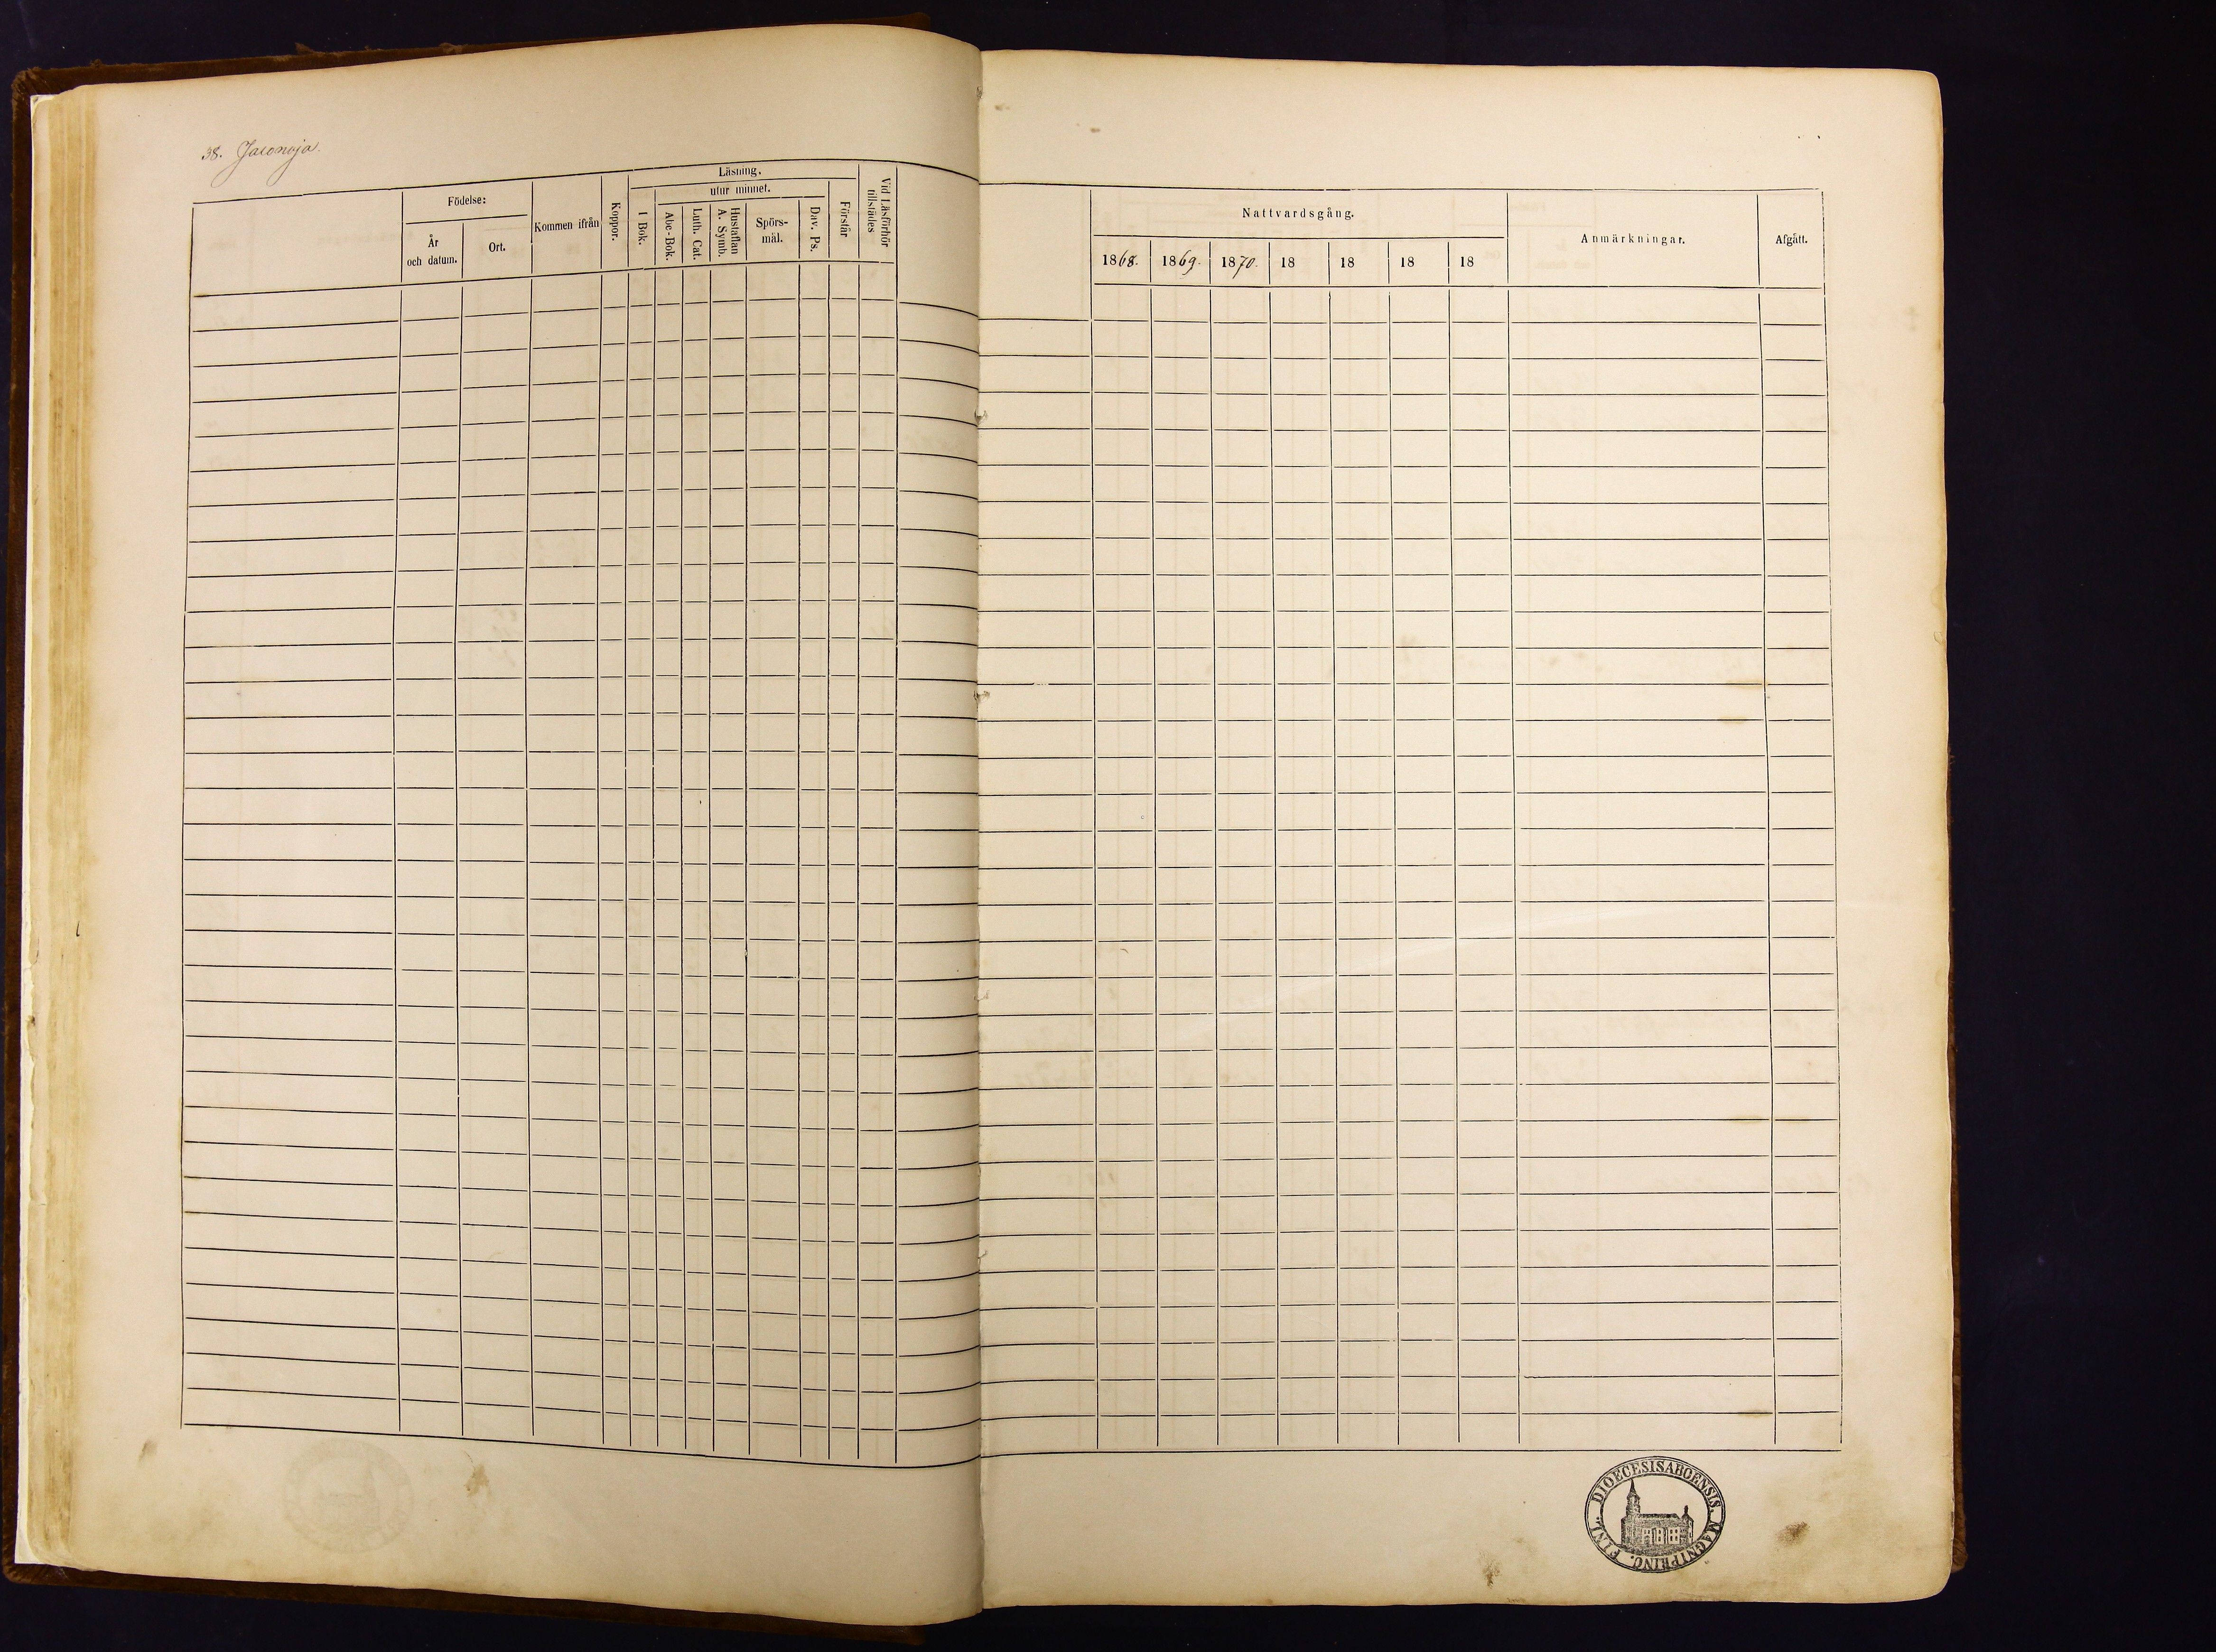 38. Jaconoja.
Födelse:
År
och datum.
Ort.
Kommen ifrån
Koppor.
Läsning.
utur minnet.
I Bok.
Abc-Bok.
Luth. Cat.
Hustaflan
A. Symb.
Spörs-
mål.
Dav. Ps.
Förstår
Vid Läsförhör
tillstädes
Nattvardsgång.
1868. 1869. 1870. 18 18 18 18
Anmärkningar.
Afgått.
DIOECESIS ABOENSIS. MAGNI PRINC. FINL.